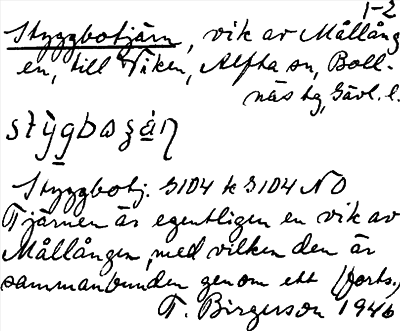 1-2
Styggbotjärn, vik av Mållång
en, till Viken, Alfta sn, Boll-
näs tg, Gävl. l.
Styggbotj. 3104 k 3104 NO
Tjärnen är egentligen en vik av
Mållången, med vilken den är
sammanbunden genom ett (forts.)
T. Birgerson 1946